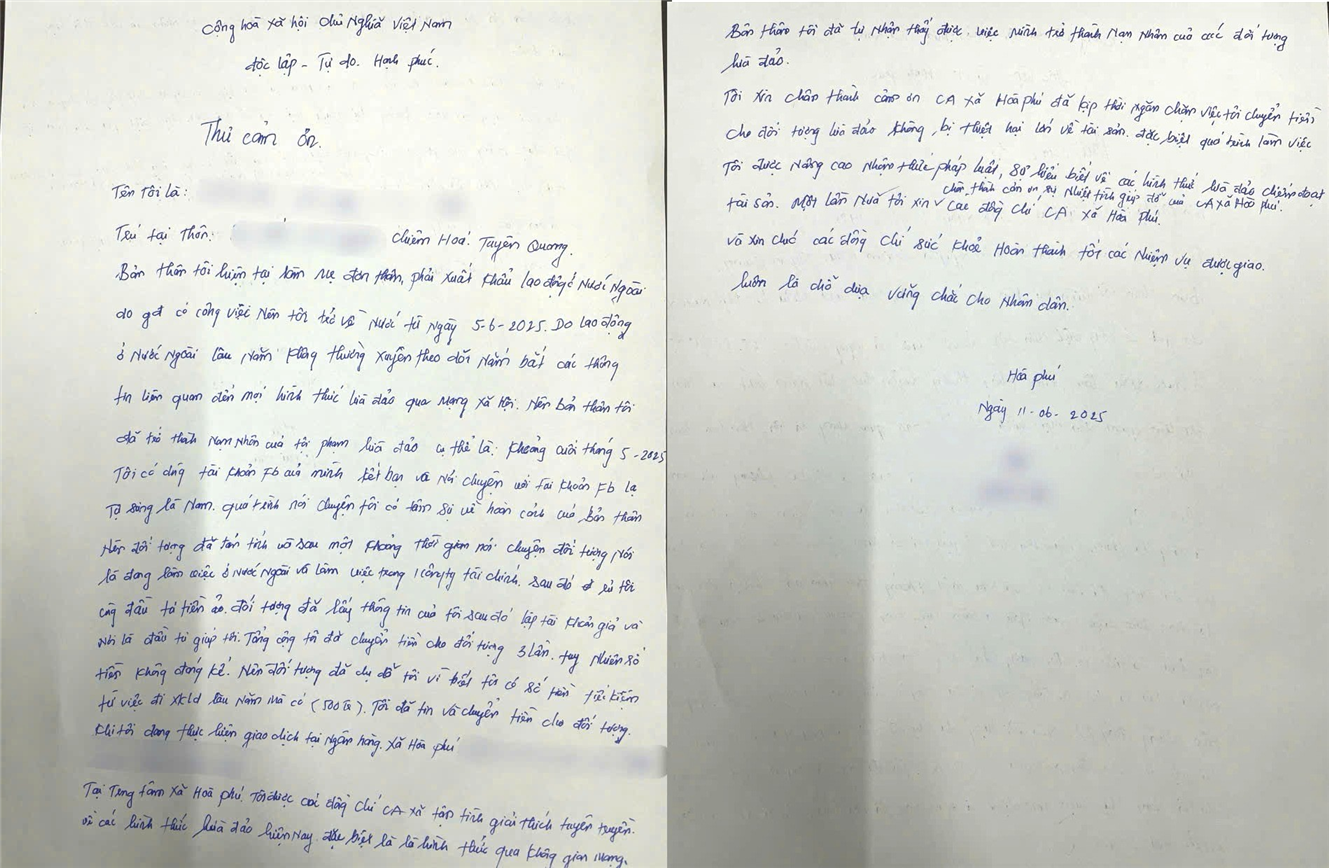 Cộng hoà xã hội chủ Nghĩa Việt Nam
độc lập - Tự do. Hạnh phúc.
Thư cảm ơn.
Tên tôi là:
Trú tại Thôn: Chiêm Hoá. Tuyên Quang.
Bản thân tôi hiện tại làm mẹ đơn thân, phải xuất khẩu lao động ở Nước Ngoài
do gđ có công việc Nên tôi trở về Nước từ Ngày 5-6-2025. Do lao động
ở Nước Ngoài lâu Năm không thường xuyên theo dõi Nắm bắt các thông
tin liên quan đến mọi hình thức lừa đảo qua mạng xã hội. Nên bản thân tôi
đã trở thành Nạn Nhân của tội phạm lừa đảo cụ thể là: Khoảng cuối tháng 5-2025
Tôi có dùng tài khoản Fb của mình kết bạn và Nói chuyện với tài khoản Fb lạ
là Nam. quá trình nói chuyện tôi có tâm sự về hoàn cảnh của bản thân
Nên đối tượng đã tán tỉnh và sau một khoảng thời gian nói chuyện đối tượng Nói
là đang làm việc ở Nước Ngoài và làm việc trong 1 công ty tài chính. sau đó rủ tôi
cùng đầu tư tiền ảo. đối tượng đã lấy thông tin của tôi sau đó lập tài khoản giả và
Nói là đầu tư giúp tôi. Tổng cộng tôi đã chuyển tiền cho đối tượng 3 lần. tuy Nhiên số
tiền không đáng kể. Nên đối tượng đã dụ dỗ tôi vì biết tôi có số tiền tiết kiệm
từ việc đi xklđ lâu Năm mà có (500tr). Tôi đã tin và chuyển tiền cho đối tượng.
Khi tôi đang thực hiện giao dịch tại Ngân hàng. xã Hoà phú
Tại Trung tâm xã Hoà phú. Tôi được các đồng chí CA xã tận tình giải thích tuyên truyền.
về các hình thức lừa đảo hiện Nay. đặc biệt là là hình thức qua không gian mạng.
Bản thân tôi đã tự Nhận thấy được việc mình trở thành Nạn Nhân của các đối tượng
lừa đảo.
Tôi xin chân thành cảm ơn CA xã Hoà phú đã kịp thời ngăn chặn việc tôi chuyển tiền
cho đối tượng lừa đảo không bị thiệt hại lớn về tài sản. đặc biệt quá trình làm việc
Tôi được Nâng cao Nhận thức pháp luật, sự hiểu biết về các hình thức lừa đảo chiếm đoạt
tài sản. Một lần Nữa tôi xin chân thành cảm ơn sự Nhiệt tình giúp đỡ của CA xã Hoà phú.
Các đồng chí CA xã Hoà phú.
và xin chúc các đồng chí sức khoẻ Hoàn thành tốt các Nhiệm vụ được giao.
luôn là chỗ dựa vững chắc cho Nhân dân.
Hoà phú
Ngày 11-06-2025